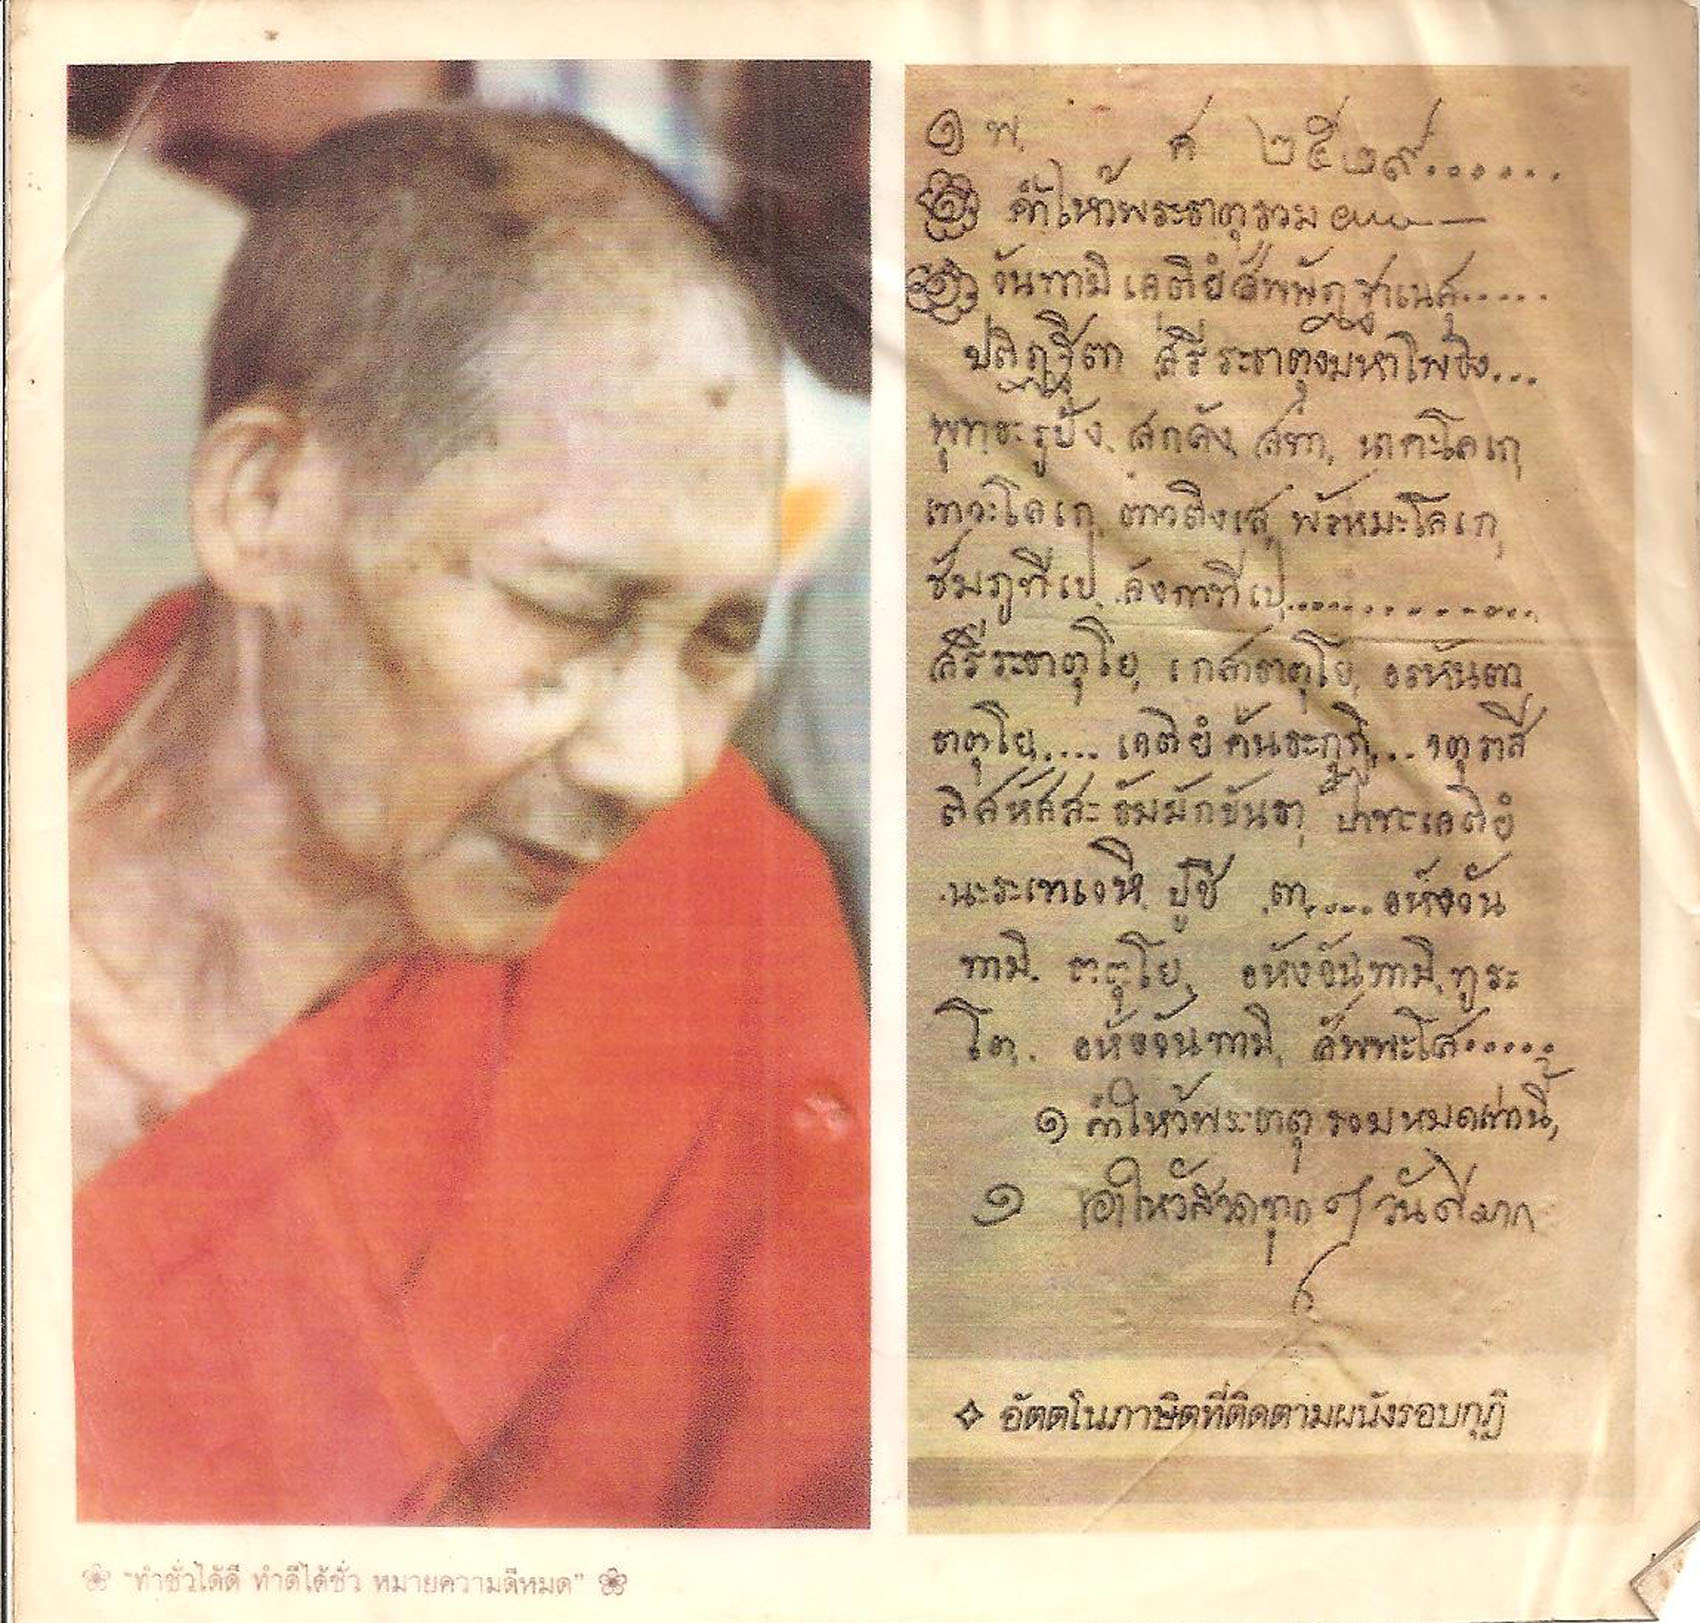 ๑ พ. ศ ๒๕๒๙......
๑ คำไหว้พระธาตุรวม
๑ วันทามิ เจติยํ สัพพัฏฐาเนสุ.....
ปติฏฐิตา สรีระธาตุงมหาโพธิง...
พุทธะรูปัง, สกลัง, สทา, นาคะโลเก,
เทวะโลเก, ดาวดึงเส, พรัหมะโลเก,
ชัมภูทีเป, ลังกาทีเป,..............
สรีระธาตุโย, เกสาธาตุโย, อรหันตา
ธาตุโย,.... เจติยํ คันธะกุฎี,... จตุราสี
ติสหัสสะ ธัมมักขันธา, ปาทะเจติยํ
นะระเทเวหิ, ปูชิ ตา,.... อหังวัน
ทามิ. ธาตุโย, อหังวันทามิ, ทูระ
โต. อหังวันทามิ, สัพพะโส.....
๑ คำไหว้พระธาตุ รวมหมดเท่านี้,
๑ เอาไหว้สวดทุก ๆ วันดีมาก
✧ อัตตโนภาษิตที่ติดตามผนังรอบกุฏิ
"ทำชั่วได้ดี ทำดีได้ชั่ว หมายความดีหมด"